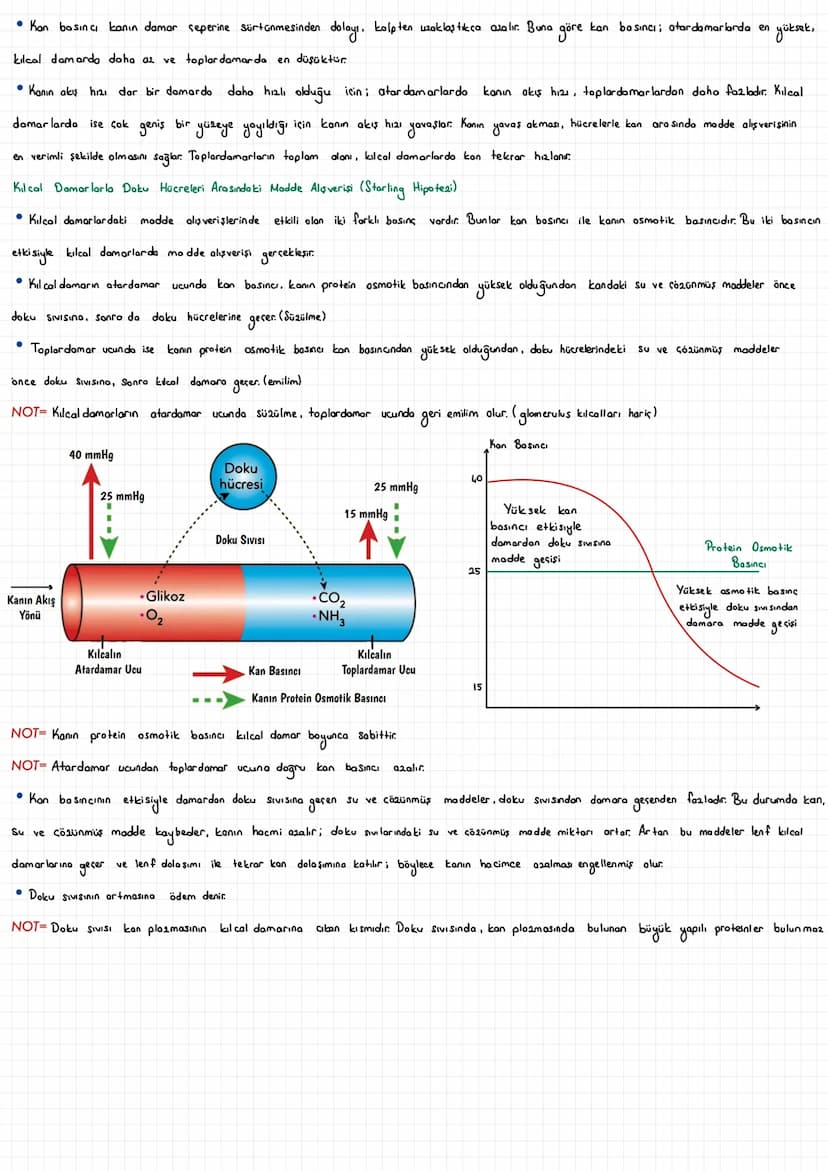 • Kan basıncı kanın damar çeperine sürtünmesinden dolayı, kalpten uzaklaştıkça azalır. Buna göre kan basıncı; atardamarlarda en yüksek,
kılcal damarda daha az ve toplardamarda en düşüktür.
• Kanın akış hızı dar bir damarda daha hızlı olduğu için; atardamarlarda kanın akış hızı, toplardamarlardan daha fazladır. Kılcal
damarlarda ise çok geniş bir yüzeye yayıldığı için kanın akış hızı yavaşlar. Kanın yavaş akması, hücrelerle kan arasında madde alışverişinin
en verimli şekilde olmasını sağlar. Toplardamarların toplam alanı, kılcal damarlarda kan tekrar hızlanır.
Kılcal Damarlarla Doku Hücreleri Arasındaki Madde Alışverişi (Starling Hipotezi)
• Kılcal damarlardaki madde alışverişlerinde etkili olan iki farklı basınç vardır. Bunlar kan basıncı ile kanın osmotik basıncıdır. Bu iki basıncın
etkisiyle kılcal damarlarda madde alışverişi gerçekleşir.
• Kılcal damarın atardamar ucunda kan basıncı, kanın protein osmotik basıncından yüksek olduğundan kandaki su ve çözünmüş maddeler önce
doku sıvısına, sonra da doku hücrelerine geçer. (Süzülme)
• Toplardamar ucunda ise kanın protein osmotik basıncı kan basıncından yüksek olduğundan, doku hücrelerindeki su ve çözünmüş maddeler
önce doku sıvısına, sonra kılcal damara geçer. (emilim)
NOT= Kılcal damarların atardamar ucunda süzülme, toplardamar ucunda geri emilim olur. (glomerulus kılcalları hariç)
40 mmHg
25 mmHg
Doku
hücresi
25 mmHg
15 mmHg
Doku Sıvısı
Kanın Akış
Yönü
• Glikoz
• O₂
• CO₂
• NH₃
Kılcalın
Atardamar Ucu
Kılcalın
Toplardamar Ucu
Kan Basıncı
Kanın Protein Osmotik Basıncı
Kan Basıncı
40
Yüksek kan
basıncı etkisiyle
damardan doku sıvısına
madde geçişi
Protein Osmotik
Basıncı
25
Yüksek osmotik basınç
etkisiyle doku sıvısından
damara madde geçişi
15
NOT= Kanın protein osmotik basıncı kılcal damar boyunca sabittir.
NOT= Atardamar ucundan toplardamar ucuna doğru kan basıncı azalır.
• Kan basıncının etkisiyle damardan doku sıvısına geçen su ve çözünmüş maddeler, doku sıvısından damara geçenden fazladır. Bu durumda kan,
su ve çözünmüş madde kaybeder, kanın hacmi azalır; doku sıvılarındaki su ve çözünmüş madde miktarı artar. Artan bu maddeler lenf kılcal
damarlarına geçer ve lenf dolaşımı ile tekrar kan dolaşımına katılır; böylece kanın hacimce azalması engellenmiş olur.
• Doku sıvısının artmasına ödem denir.
NOT= Doku sıvısı kan plazmasının kılcal damarına çıkan kısmıdır. Doku sıvısında, kan plazmasında bulunan büyük yapılı proteinler bulunmaz